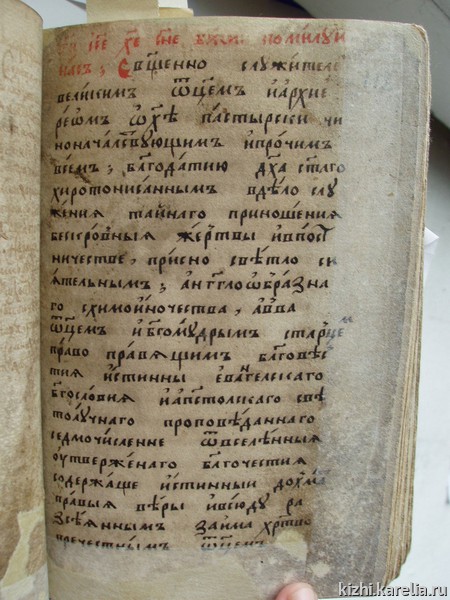 і҃се х҃е с҃не б҃жи помилуи
насъ; Сщ҃енно служителе
великимъ ѿц҃емъ їархие
реѡмъ ѡх҃ѣ пастырски чи
ноначалствующим ипрочим
всем; бл҃годатию дх҃а ст҃аго
хиротонисаннымъ вдѣло слу
жения тайнаго приношения
бескровныя жертвы ивпост
ничестве, присно свѣтло си
ятельнымъ; анг҃глоѡбразна
го схимоиночества, авва
ѿц҃емъ ибг҃омудрым старцем
право правящим бл҃говѣс
тия истинны еван҃гелскаго
бг҃ословия иап҃столскаго свѣ
толучнаго проповѣданнаго
седмочисление ѿвселенныя
оутверженаго бл҃гочестия
содержаще истинныи дохма
правыя вѣры ивсюду ра
зсѣянным за имя хр҃тво
пречестнымъ ѿц҃емъ
kizhi.karelia.ru